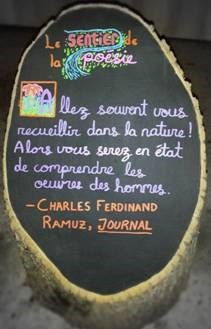 Le SENTIER de
la poésie
Allez souvent vous
recueillir dans la nature!
Alors vous serez en état
de comprendre les
oeuvres des hommes.
– CHARLES FERDINAND
RAMUZ, JOURNAL